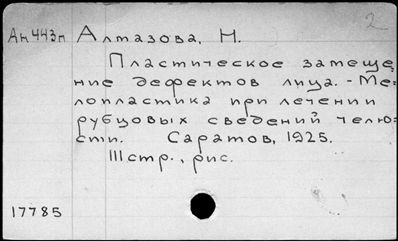 2
Ан443п Алмазова, Н.
Пластическое замеще-
ние дефектов лица. - Ме-
лопластика при лечении
рубцовых сведений челю-
сти. Саратов, 1925.
111 стр., рис.
17785